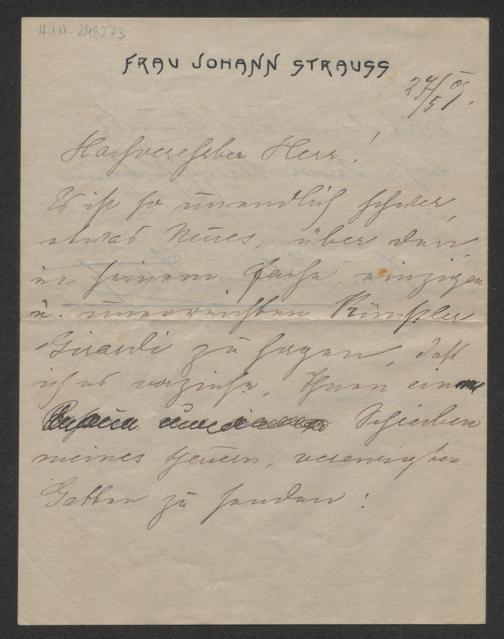 H.I.N. 248273
FRAU JOHANN STRAUSS
27/5 09.
Hochverehrter Herr!
Es ist so unendlich schwer,
etwas Neues, über den,
in seinem Fache einzigen
u. unerreichten Künstler
Girardi zu sagen, daß
ich es vorziehe, Ihnen ein
Schreiben
meines theuern, verewigten
Gatten zu senden!